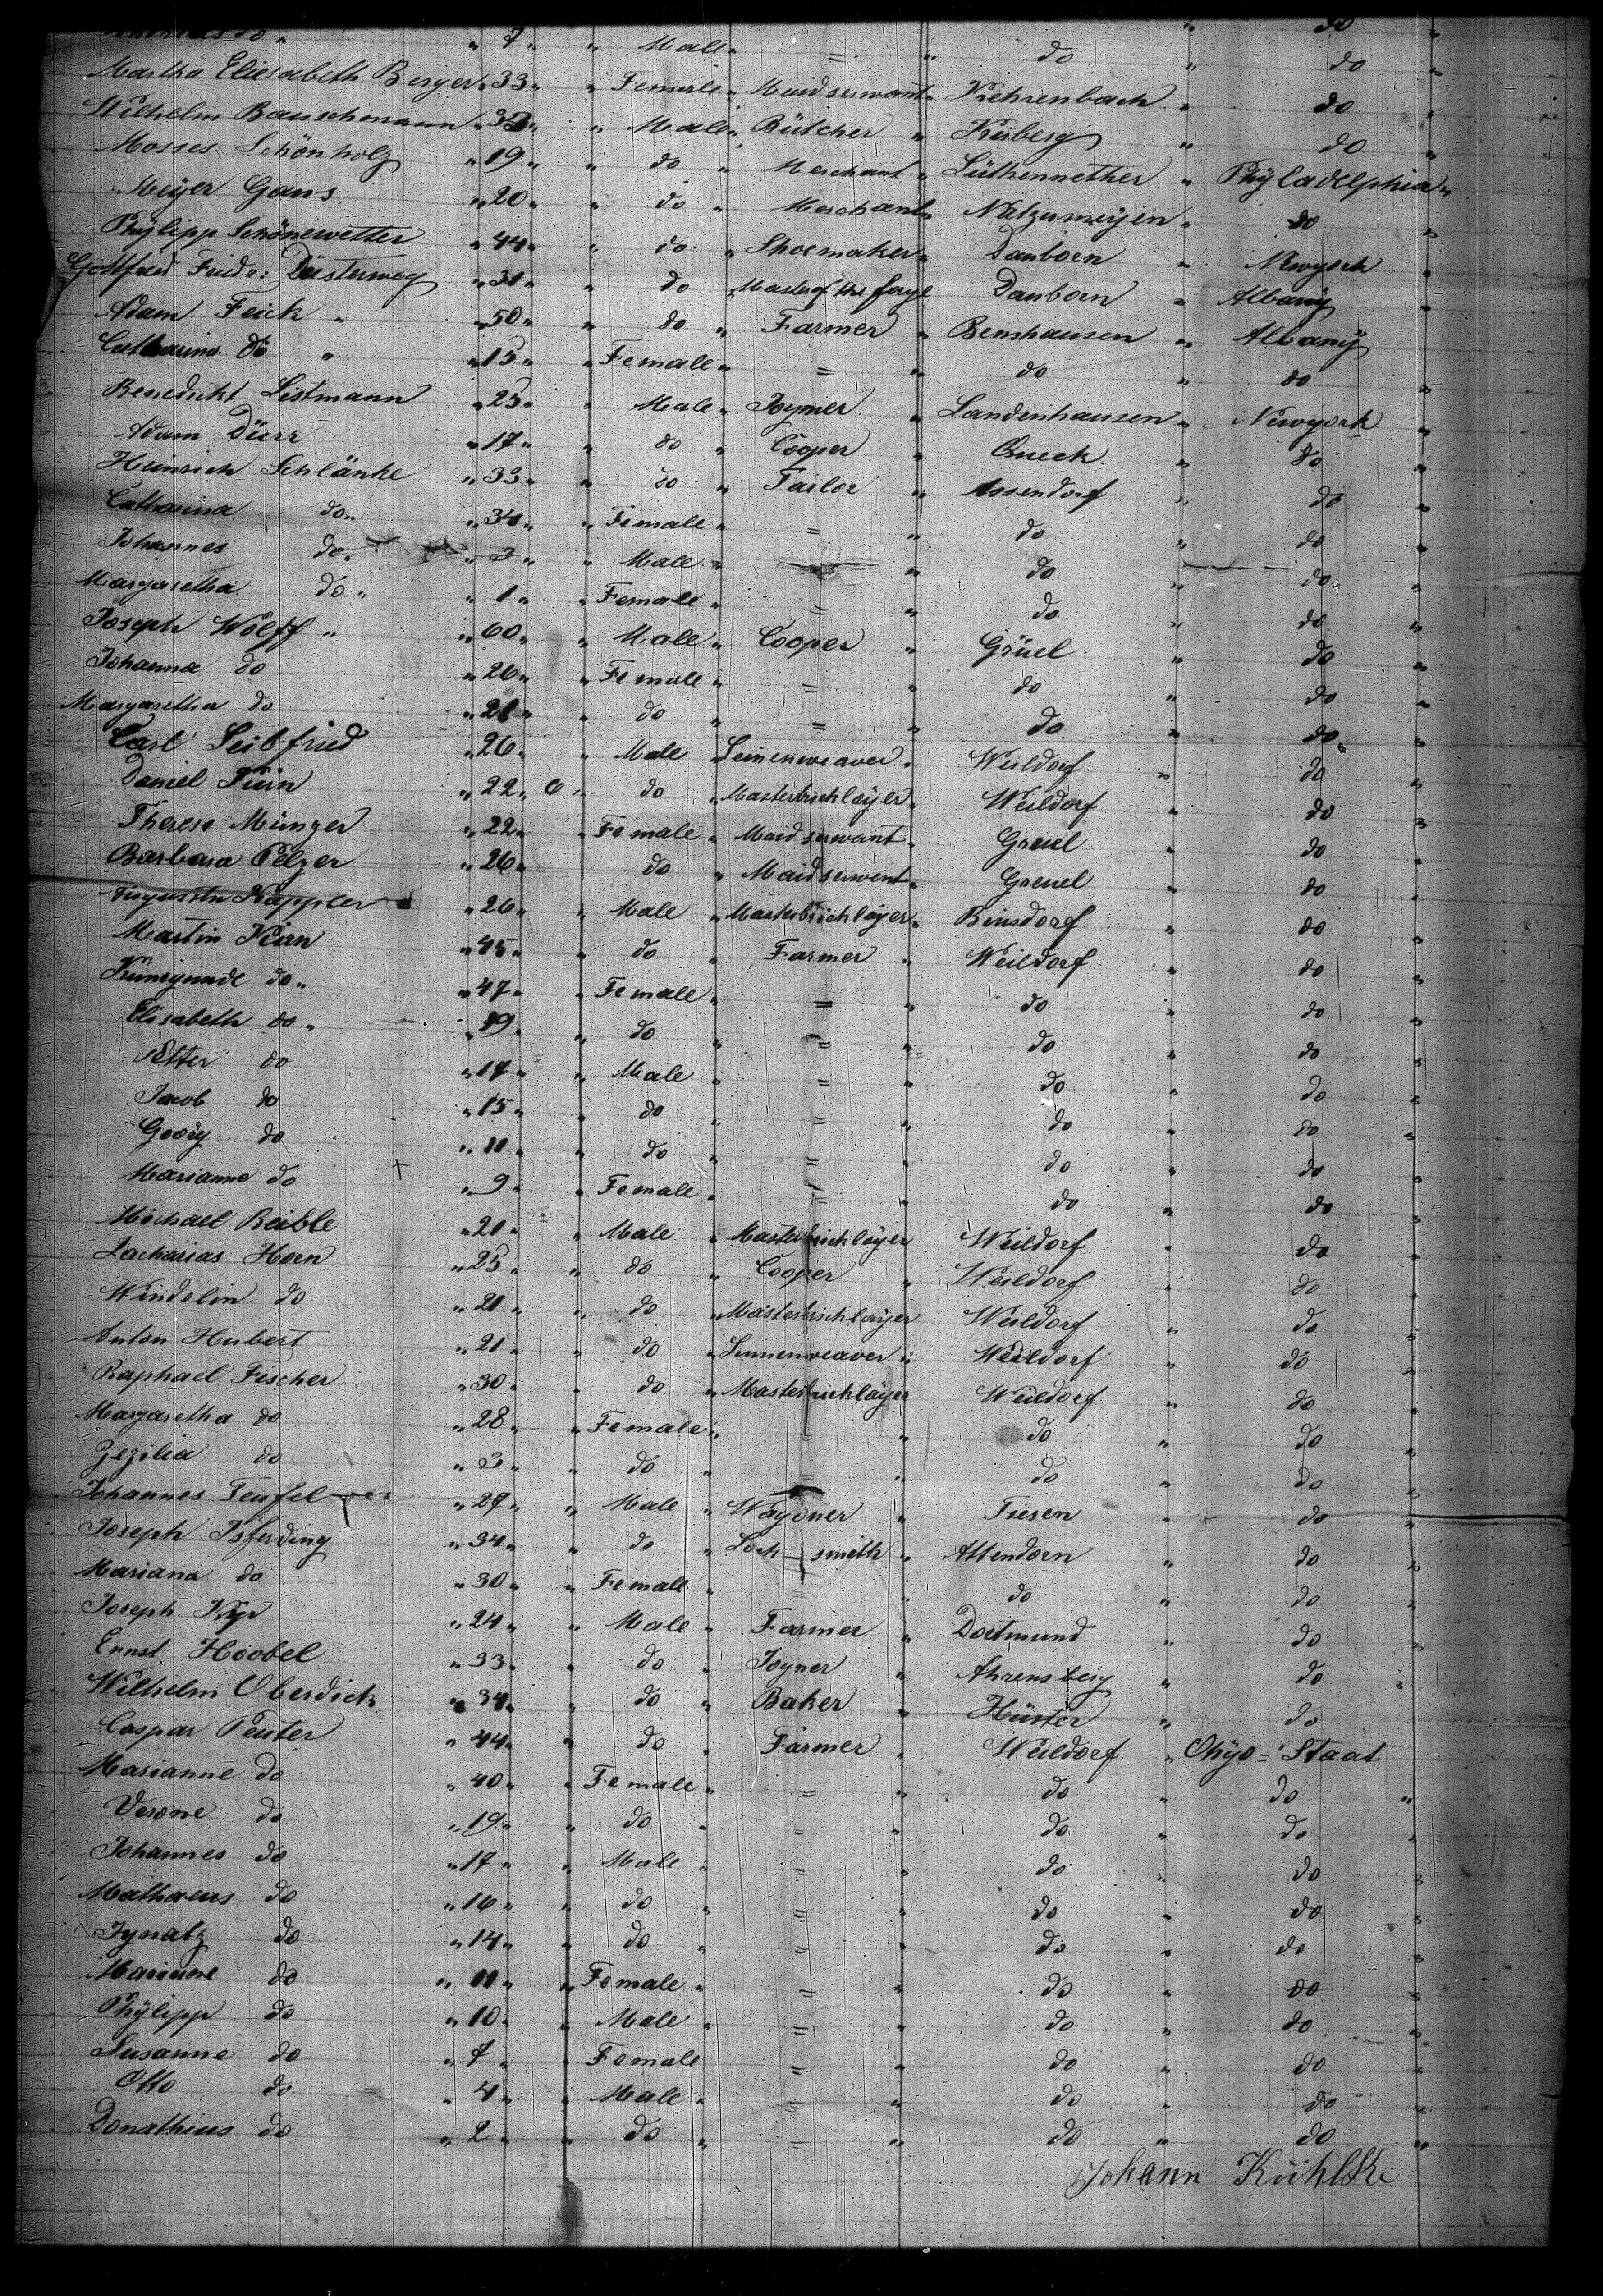 " 7 " " Male " = " do " do "
Martha Eliesabeth Berger " 33 " " Female " Maidservant " Kehrenbach " do "
Wilhelm Bauschmann " 33 " " Male " Bütcher " Kirberg " do "
Mosses Schönholz " 19 " " do " Merchant " Lütkennether " Phÿladelphia "
Meÿer Gans " 20 " " do " Merchant " Natzumeijen " do "
Phÿlipp Schönewetter " 44 " " do " Shoemaker " Dauborn " Newyork
Gottfried Friedr: Düsterweg " 31 " " do " Master of the forge Dauborn " Albanÿ
Adam Feick " " 50 " " do " Farmer " Bernshausen " Albanÿ
Catharina do " " 15 " " Female " = " do " do "
Benedickt Listmann " 25 " " Male " Joyner " Landenhausen " Newyork "
Adam Dürr " 17 " " do " Cooper " Queck " do "
Heinrich Schlänke " 33 " " do " Tailor " Assendorf " do "
Catharina do " " 34 " " Female " = " do " do "
Johannes do " " 3 " " Male " " do " do "
Margaretha do " " 1 " " Female " = " do " do "
Joseph Wolff " " 60 " " Male " Cooper " Grüel " do "
Johanna do " 26 " " Female " = " do " do "
Margaretha do " 21 " " do " = " do " do "
Carl Seibfried " 26 " " Male Leinenweaver " Weildorf " do "
Daniel " 22 " " do " Masterbrichlaÿer " Weildorf " do "
Therese Münzer " 22 " " Female " Maidservant " Greuel " do "
Barbara Pelzer " 26 " do " Maidservent " Greuel " do "
Augustin Käppler " 26 " " Male " Masterbrichlayer " Binsdorf " do "
Martin Kirn " 45 " " do " Farmer " Weildorf " do "
Kunigunde do " " 47 " " Female " = " do " do "
Elisabeth do " " 19 " " do " = " do " do "
do " 17 " " Male " = " do " do "
Jacob do " 15 " " do " = " do " do "
Georg do " 11 " " do " = " do " do "
Marianne do " 9 " " Female " = " do " do "
Michael Beible " 21 " " Male " Masterbrichlaÿer Weildorf " do "
Zacharias Horn " 25 " " do " Cooper " Weildorf " do "
Windelin do " 21 " " do " Masterbrichlaÿer Weildorf " do "
Anton Hubert " 21 " " do " Linnenweaver " Weildorf " do "
Raphael Fischer " 30 " " do " Masterbrichläyer Weildorf " do "
Margaretha do " 28 " " Female " = " do " do "
Zezilia do " 3 " " do " = " do " do "
Johannes Teufel " 27 " " Male " Waggoner " Tresen " do "
Joseph Isferding " 34 " " do " Loch-smith " Attendorn " do "
Mariana do " 30 " " Female " " do " do "
Joseph " 24 " " Male " Farmer " Dortmund " do "
Ernst Hoobel " 33 " " do " Joyner " Ahrensberg " do "
Wilhelm Oberdick " 34 " " do " Baker " Hüster " do "
Caspar Peuter " 44 " " do " Farmer " Weildorf " Ohÿo=Staat
Marianne do " 40 " " Female " = " do " do "
Verone do " 19 " " do " = " do " do "
Johannes do " 17 " " Male " = " do " do "
Mathaeus do " 16 " " do " = " do " do "
Ignatz do " 14 " " do " = " do " do "
Marianne do " 11 " " Female " = " do " do "
Phÿlipp do " 10 " " Male " = " do " do "
Susanne do " 7 " " Female = " do " do "
Otto do " 4 " " Male " = " do " do "
Donathius do " 2 " " do " = " do " do "
Johann Kühlke